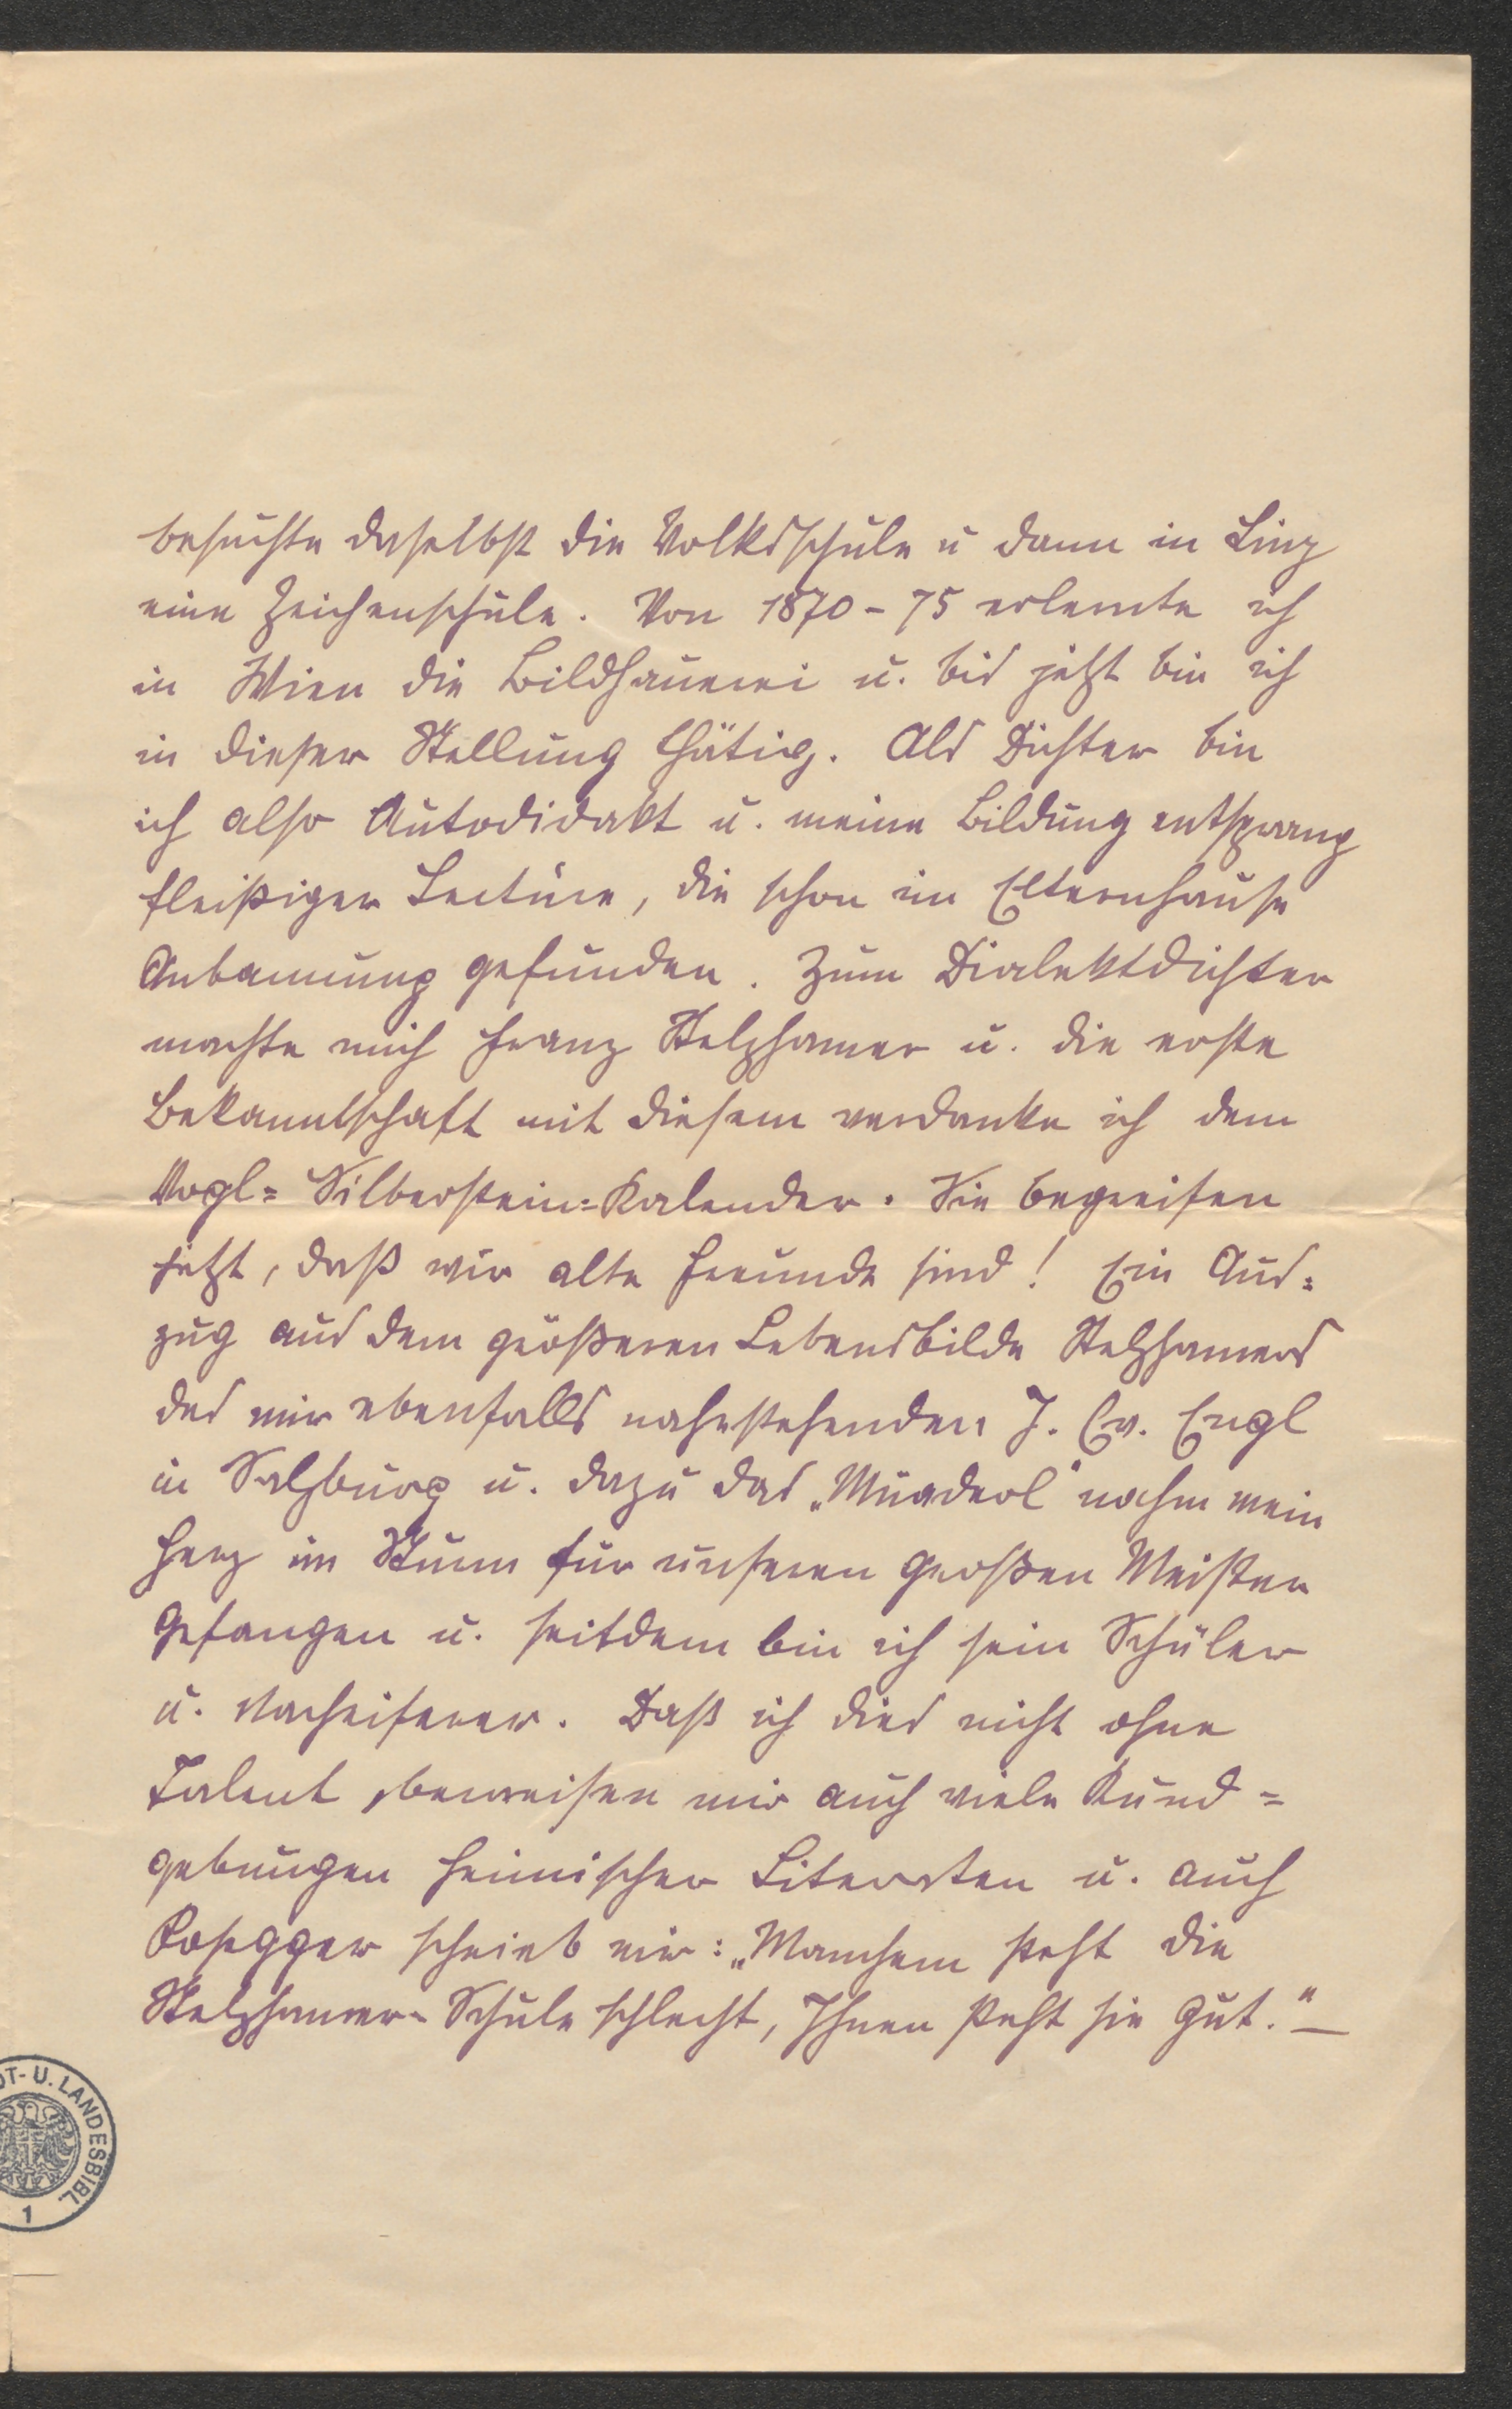 besuchte daselbst die Volksschule u dann in Linz
eine Zeichenschule. Von 1870-75 erlernte ich
in Wien die Bildhauerei u. bis jetzt bin ich
in dieser Stellung thätig. Als Dichter bin
ich also Autodidakt u. meine Bildung entsprang
fleißiger Lectüre, die schon im Elternhause
gefunden. Zum Dialektdichter
machte mich Franz Stelzhamer u. die erste
Bekanntschaft mit diesem verdanke ich dem
Vogl=Silberstein=Kalender. Sie begreifen
jetzt, daß wir alte Freunde sind! Ein Aus=
zug aus dem größeren Lebensbilde Stelzhamers
des mir ebenfalls nahestehenden J. Ev. Engl
in Salzburg u. dazu das „Müaderl" nahm mein
Herz im Sturm für unseren großen Meister
gefangen u. seitdem bin ich sein Schüler
u. Nacheiferer. Daß ich dies nicht ohne
Talent, beweisen mir auch viele Kund=
gebungen heimischer Literaten u. auch
Rosegger schrieb mir: „Manchem steht die
Stelzhamer-Schule schlecht, Ihnen steht sie gut." –
DT- U. LANDESBIBL.
1